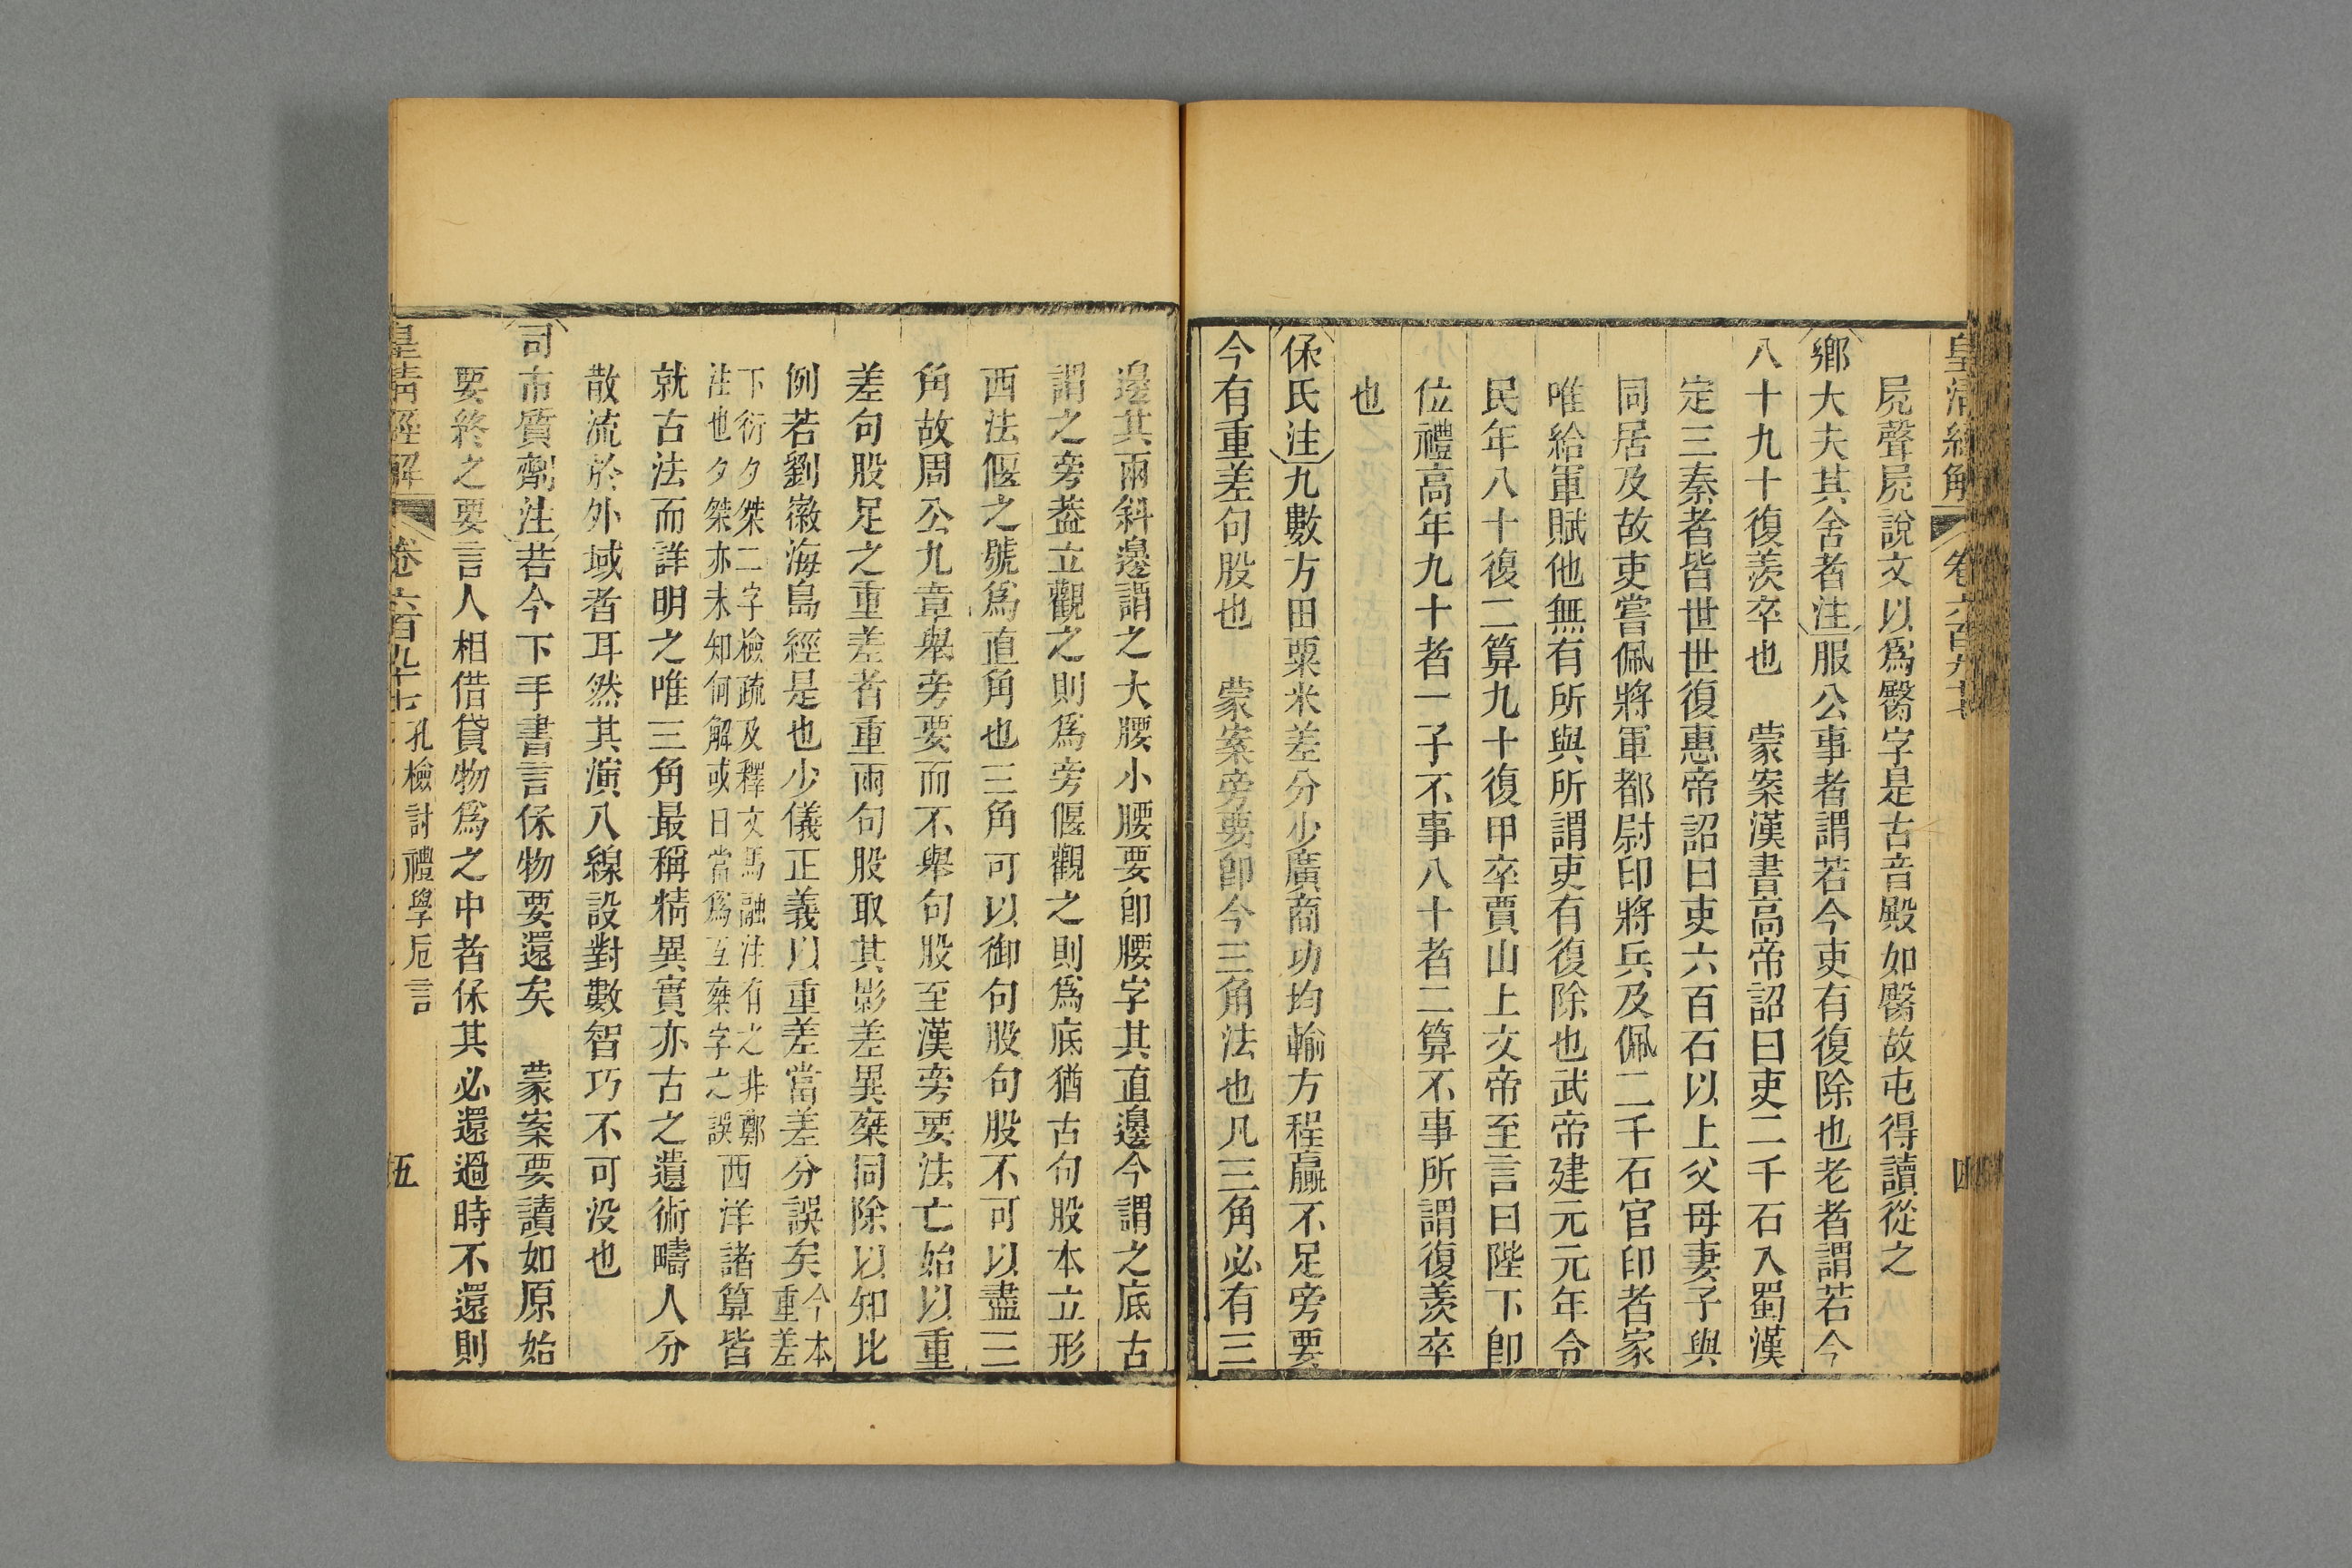 皇清經解 卷六百九十七 四
屍聲屍說文以爲臀字是古音殿如臀故屯得讀從之
鄉大夫其舍者注服公事者謂若今吏有復除也老者謂若今
八十九十復羨卒也　蒙案漢書高帝詔曰吏二千石入蜀漢
定三秦者皆世世復惠帝詔曰吏六百石以上父母妻子與
同居及故吏嘗佩將軍都尉印將兵及佩二千石官印者家
唯給軍賦他無有所與所謂吏有復除也武帝建元元年令
民年八十復二算九十復甲卒賈山上文帝至言曰陛下卽
位禮高年九十者一子不事八十者二算不事所謂復羨卒
也
保氏注九數方田粟米差分少廣商功均輸方程贏不足旁要
今有重差句股也　蒙案旁要卽今三角法也凡三角必有三
邊其兩斜邊謂之大腰小腰要卽腰字其直邊今謂之底古
謂之旁葢立觀之則爲旁偃觀之則爲底猶古句股本立形
西法偃之號爲直角也三角可以御句股句股不可以盡三
角故周公九章舉旁要而不舉句股至漢旁要法亡始以重
差句股足之重差者重兩句股取其影差異乘同除以知比
例若劉徽海島經是也少儀正義以重差當差分誤矣今本重差
下衍夕桀二字檢疏及釋文馬融注有之非鄭注也夕桀亦未知何解或曰當爲互乘字之誤西洋諸算皆
就古法而詳明之唯三角最稱精異實亦古之遺術疇人分
散流於外域者耳然其演八線設對數智巧不可没也
司市質劑注若今下手書言保物要還矣　蒙案要讀如原始
要終之要言人相借貸物爲之中者保其必還過時不還則
皇清經解 卷六百九十七 孔檢討禮學卮言 五